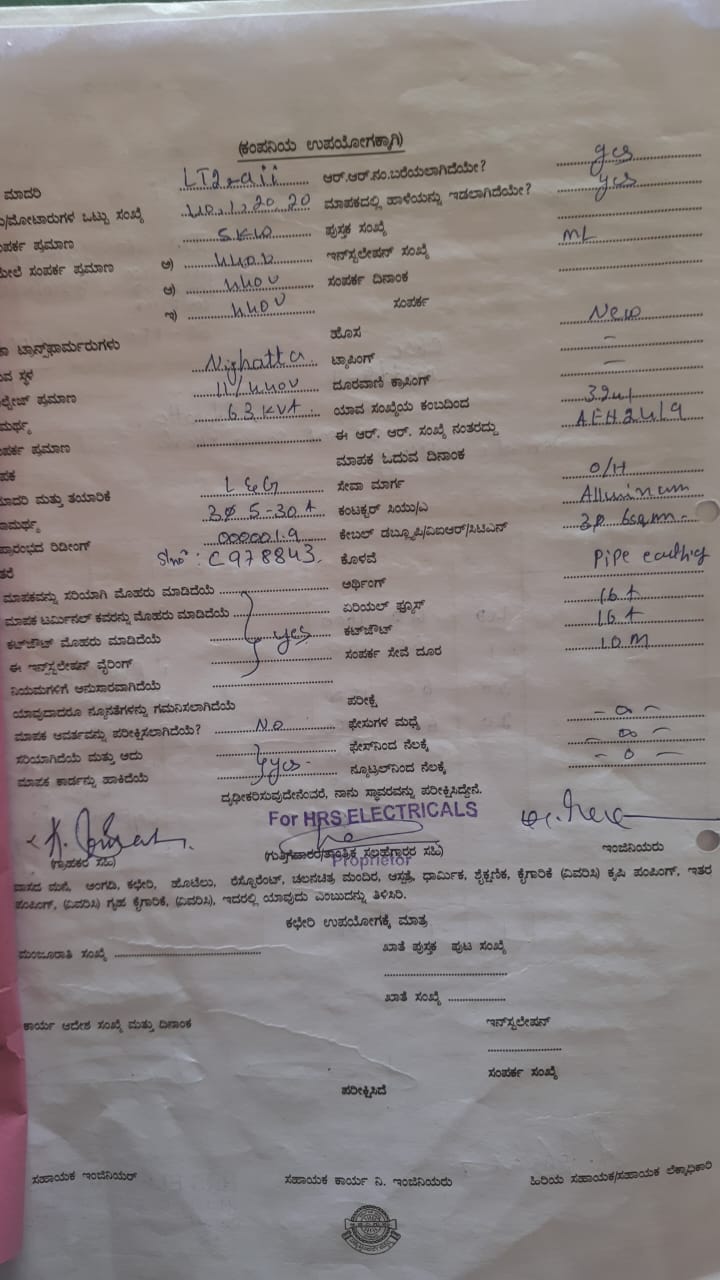 (ಕಂಪನಿಯ ಉಪಯೋಗಕ್ಕಾಗಿ)
ಮಾದರಿ LT2 ಆರ್.ಆರ್.ನಂ.ಬರೆಯಲಾಗಿದೆಯೇ? yes
ಮೋಟಾರುಗಳ ಒಟ್ಟು ಸಂಖ್ಯೆ ಮಾಪಕದಲ್ಲಿ ಹಾಳೆಯನ್ನು ಇಡಲಾಗಿದೆಯೇ? yes
ಪ್ರಮಾಣ 5KW ಪುಸ್ತಕ ಸಂಖ್ಯೆ
ಮೇಲೆ ಸಂಪರ್ಕ ಪ್ರಮಾಣ ಅ) ಇನ್‌ಸ್ಟಲೇಷನ್ ಸಂಖ್ಯೆ ML
ಆ) 440V ಸಂಪರ್ಕ ದಿನಾಂಕ
ಇ) 440V ಸಂಪರ್ಕ
ಟ್ರಾನ್ಸ್‌ಫಾರ್ಮರುಗಳು ಹೊಸ New
ಸ್ಥಳ Nighatta ಟ್ಯಾಪಿಂಗ್ –
ಪ್ರಮಾಣ 11/440V ದೂರವಾಣಿ ಕ್ರಾಸಿಂಗ್ –
63 KVA ಯಾವ ಸಂಖ್ಯೆಯ ಕಂಬದಿಂದ
ಪ್ರಮಾಣ ಈ ಆರ್. ಆರ್. ಸಂಖ್ಯೆ ನಂತರದ್ದು AEH2419
ಮಾಪಕ ಓದುವ ದಿನಾಂಕ
ಮತ್ತು ತಯಾರಿಕೆ L&G ಸೇವಾ ಮಾರ್ಗ O/H
3Ø 5-30A ಕಂಟಕ್ಟರ್ ಸಿಯು/ಎ Alluminum
ರೀಡಿಂಗ್ 000001.9 ಕೇಬಲ್ ಡಬ್ಲ್ಯುಪಿ/ವಿಐಆರ್/ಸಿಟಿಎನ್
Slno: C978843 ಕೊಳವೆ
ಮಾಪಕವನ್ನು ಸರಿಯಾಗಿ ಮೊಹರು ಮಾಡಿದೆಯೆ ಅರ್ಥಿಂಗ್ Pipe earthing
ಮಾಪಕ ಟರ್ಮಿನಲ್ ಕವರನ್ನು ಮೊಹರು ಮಾಡಿದೆಯೆ ಏರಿಯಲ್ ಫ್ಯೂಸ್ 16 A
ಕಟ್‌ಔಟ್ ಮೊಹರು ಮಾಡಿದೆಯೆ yes ಕಟ್‌ಔಟ್ 16 A
ಈ ಇನ್‌ಸ್ಟಲೇಷನ್ ವೈರಿಂಗ್ ಸಂಪರ್ಕ ಸೇವೆ ದೂರ 10 M
ನಿಯಮಗಳಿಗೆ ಅನುಸಾರವಾಗಿದೆಯೆ
ಯಾವುದಾದರೂ ನ್ಯೂನತೆಗಳನ್ನು ಗಮನಿಸಲಾಗಿದೆಯೆ ಪರೀಕ್ಷೆ
ಮಾಪಕ ಆವರ್ತವನ್ನು ಪರೀಕ್ಷಿಸಲಾಗಿದೆಯೆ? No ಫೇಸುಗಳ ಮಧ್ಯೆ
ಸರಿಯಾಗಿದೆಯೆ ಮತ್ತು ಅದು ಫೇಸ್‌ನಿಂದ ನೆಲಕ್ಕೆ
ಮಾಪಕ ಕಾರ್ಡನ್ನು ಹಾಕಿದೆಯೆ yes ನ್ಯೂಟ್ರಲ್‌ನಿಂದ ನೆಲಕ್ಕೆ
ದೃಢೀಕರಿಸುವುದೇನೆಂದರೆ, ನಾನು ಸ್ಥಾವರವನ್ನು ಪರೀಕ್ಷಿಸಿದ್ದೇನೆ.
For HRS ELECTRICALS
(ಗ್ರಾಹಕರ ಸಹಿ) (ಗುತ್ತಿಗೆದಾರರ/ತಾಂತ್ರಿಕ ಸಲಹಾಗಾರರ ಸಹಿ) ಇಂಜಿನಿಯರು
Proprietor
ವಾಸದ ಮನೆ, ಅಂಗಡಿ, ಕಛೇರಿ, ಹೊಟೆಲು, ರೆಸ್ಟೊರೆಂಟ್, ಚಲನಚಿತ್ರ ಮಂದಿರ, ಆಸ್ಪತ್ರೆ, ಧಾರ್ಮಿಕ, ಶೈಕ್ಷಣಿಕ, ಕೈಗಾರಿಕೆ (ವಿವರಿಸಿ) ಕೃಷಿ ಪಂಪಿಂಗ್, ಇತರ
ಪಂಪಿಂಗ್, (ವಿವರಿಸಿ) ಗೃಹ ಕೈಗಾರಿಕೆ, (ವಿವರಿಸಿ), ಇದರಲ್ಲಿ ಯಾವುದು ಎಂಬುದನ್ನು ತಿಳಿಸಿರಿ.
ಕಛೇರಿ ಉಪಯೋಗಕ್ಕೆ ಮಾತ್ರ
ಮಂಜೂರಾತಿ ಸಂಖ್ಯೆ ಖಾತೆ ಪುಸ್ತಕ ಪುಟ ಸಂಖ್ಯೆ
ಖಾತೆ ಸಂಖ್ಯೆ
ಕಾರ್ಯ ಆದೇಶ ಸಂಖ್ಯೆ ಮತ್ತು ದಿನಾಂಕ ಇನ್‌ಸ್ಟಲೇಷನ್
ಸಂಪರ್ಕ ಸಂಖ್ಯೆ
ಪರೀಕ್ಷಿಸಿದೆ
ಸಹಾಯಕ ಇಂಜಿನಿಯರ್ ಸಹಾಯಕ ಕಾರ್ಯ ನಿ. ಇಂಜಿನಿಯರು ಹಿರಿಯ ಸಹಾಯಕ/ಸಹಾಯಕ ಲೆಕ್ಕಾಧಿಕಾರಿ